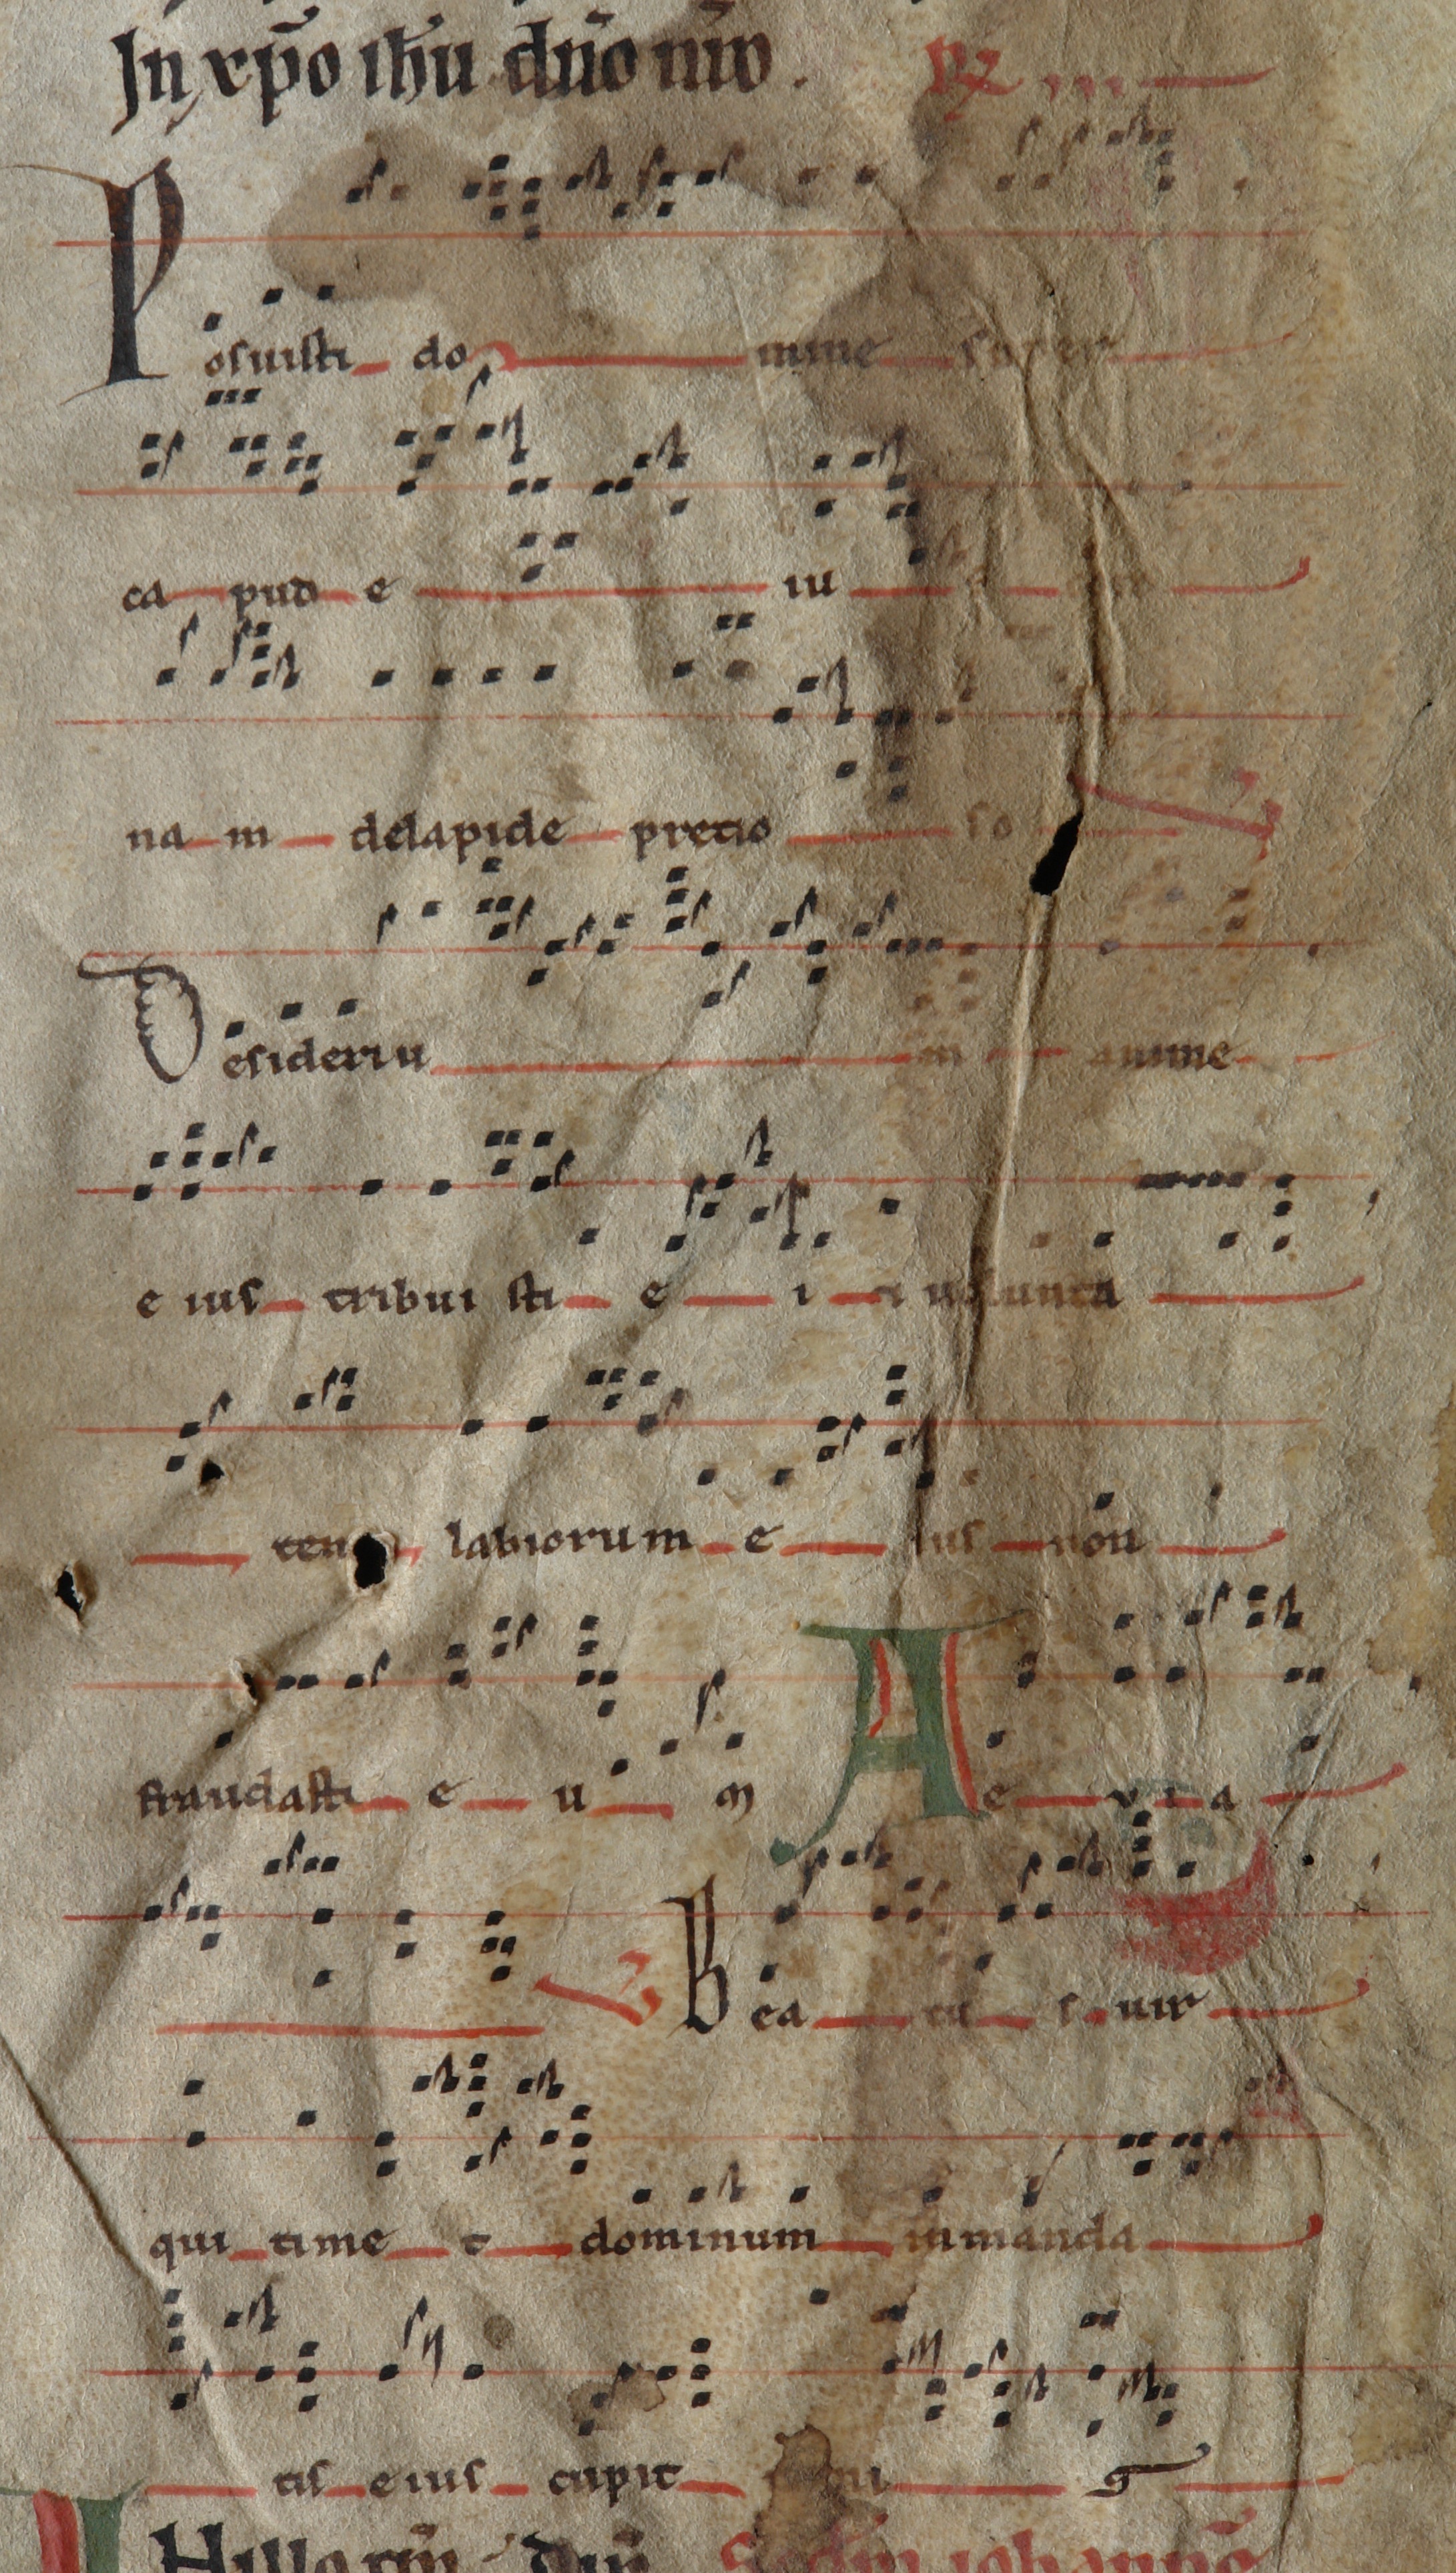 Jn xp̄o ih̄u dn̄o nr̄o . R̄
Posuisti do mine super
ca pud e iu
na m delapide precio so
Desideriu m anime
e ius tribui sti e i i uolunta
ten labiorum e ius non
fraudasti e u m A e v i a
Bea tu s uir
qui time t dominum in manda
tis eius cupit ni